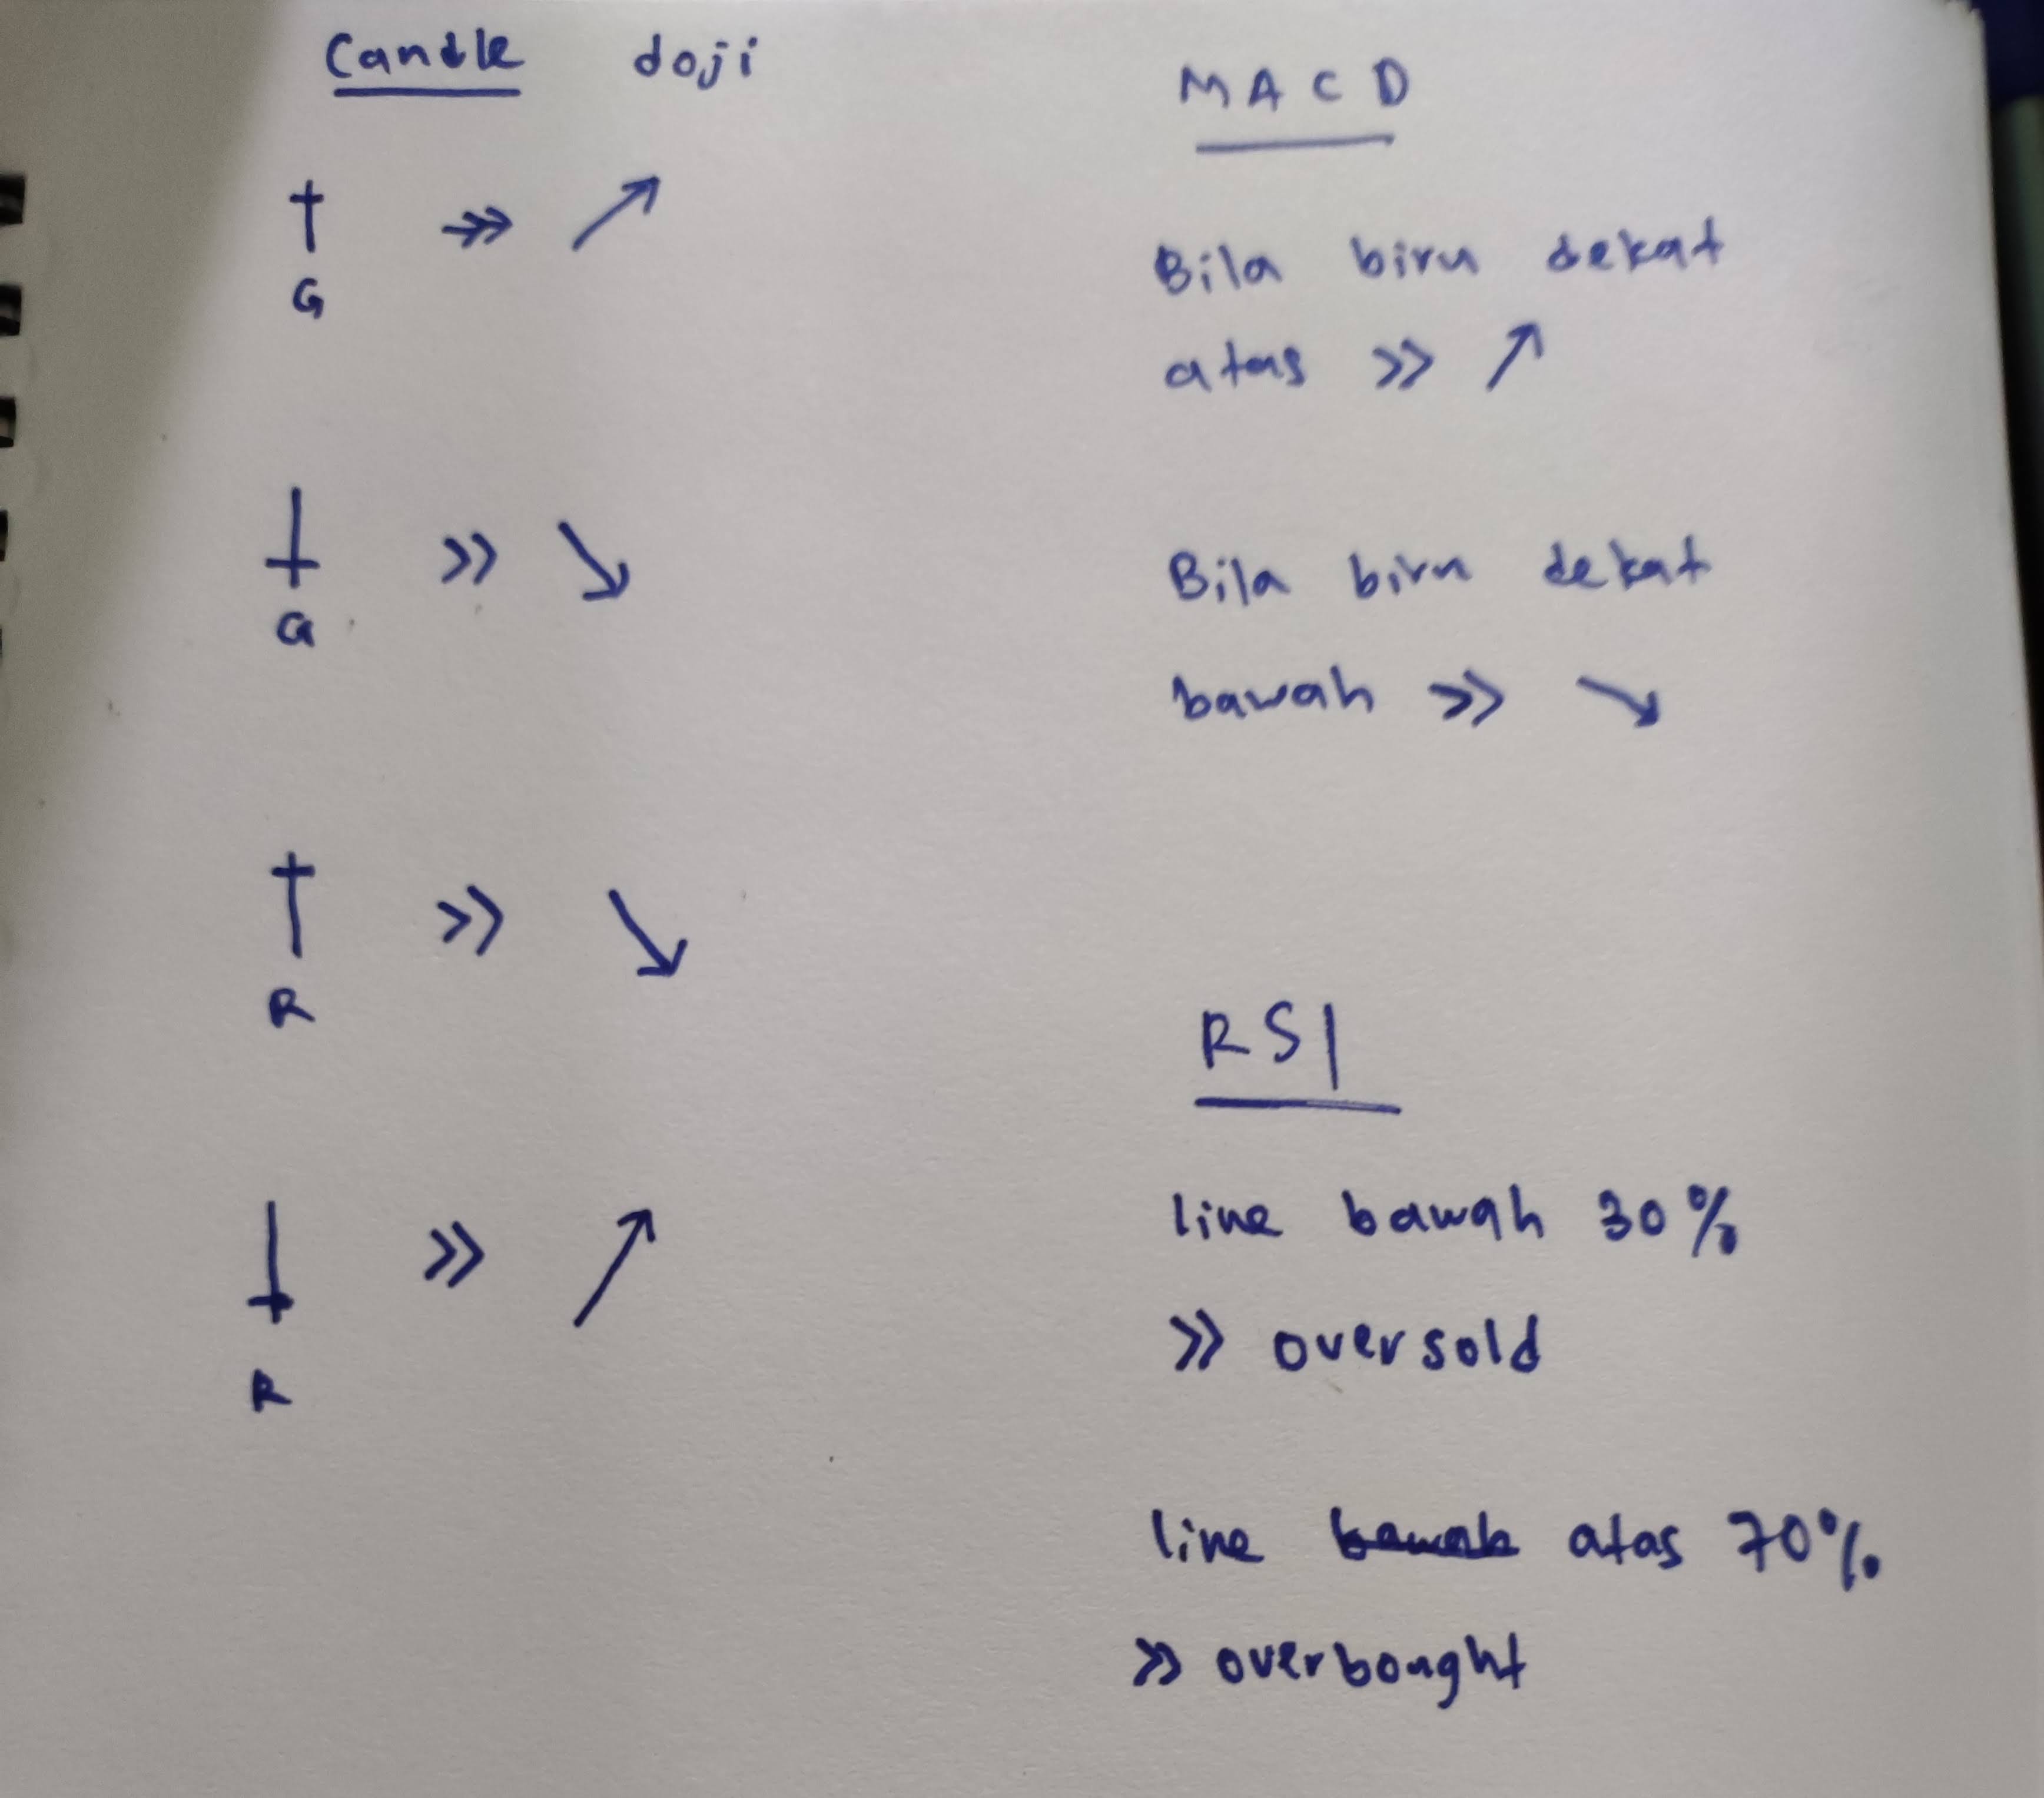 Candle doji
G
G
R
R
MACD
Bila biru dekat
atas >> ↗
Bila biru dekat
bawah >> ↘
RSI
line bawah 30%
>> oversold
line bawah atas 70%
>> overbought